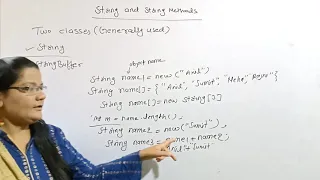 String and String Methods
Two classes (Generally used)
String
StringBuffer
object name
String name1 = new ("Anil");
String name[] = {"Anil", "Sumit", "Neha",
String name[] = new string[7]
int m = name.length();
String name2 = new ("Sumit");
String name3 = name1 + name2;